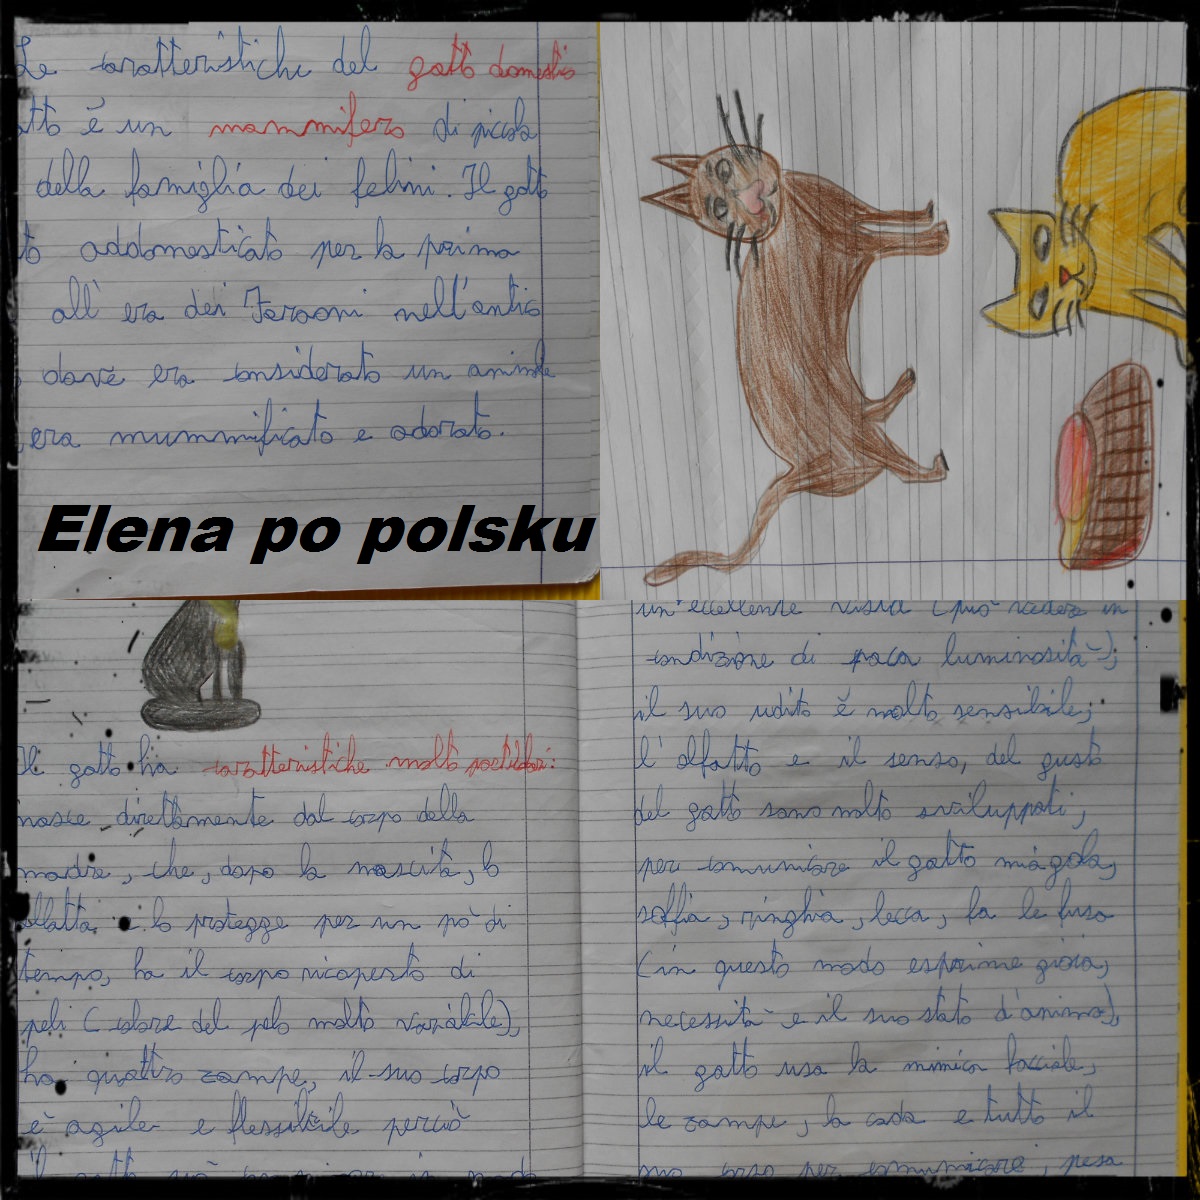 Le caratteristiche del gatto domestico
tto è un mammifero di piccola
della famiglia dei felini. Il gatto
to addomesticato per la prima
all'era dei Faraoni nell'antico
dove era considerato un animale
, era mummificato e adorato.
Elena po polsku
Il gatto ha caratteristiche molto particolari:
nasce direttamente dal corpo della
madre, che, dopo la nascita, lo
allatta e lo protegge per un pò di
tempo, ha il corpo ricoperto di
peli (colore del pelo molto variabile),
ha quattro zampe, il suo corpo
è agile e flessibile perciò
il gatto può in modo
un'eccellente vista (può vedere in
condizione di poca luminosità);
il suo udito è molto sensibile;
l'olfatto e il senso, del gusto
del gatto sono molto sviluppati;
per comunicare il gatto miagola,
soffia, ringhia, lecca, fa le fusa
(in questo modo esprime gioia,
necessità e il suo stato d'animo),
il gatto usa la mimica facciale,
le zampe, la coda e tutto il
suo corpo per comunicare, pesa